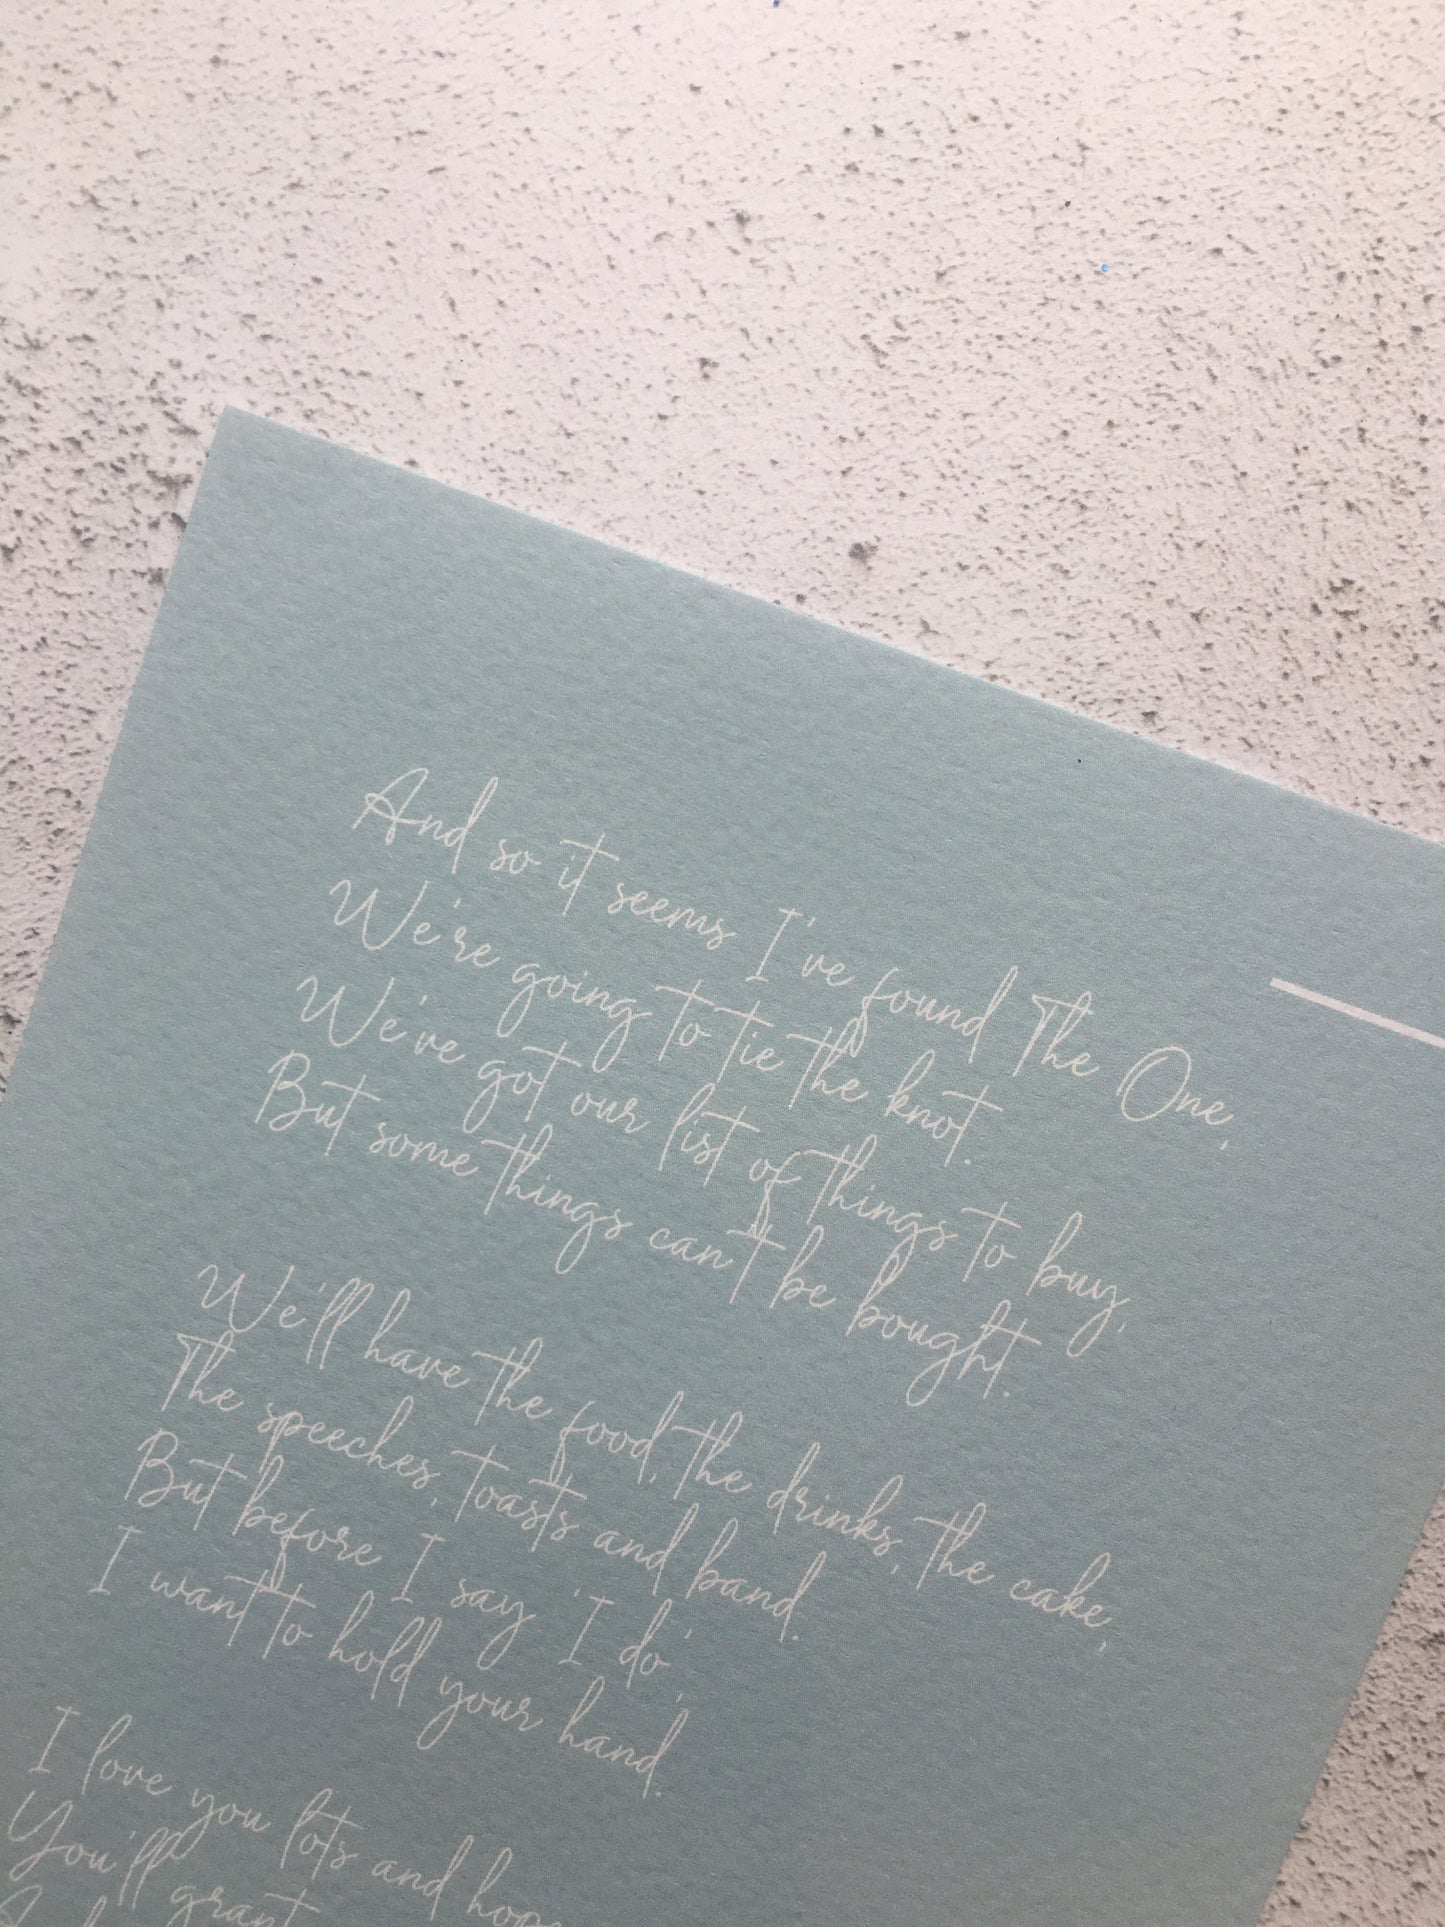 And so it seems I've found The One,
We're going to tie the knot.
We've got our list of things to buy,
But some things can't be bought.
We'll have the food, the drinks, the cake,
The speeches, toasts and band.
But before I say 'I do',
I want to hold your hand.
I love you lots and hope
You'll grant